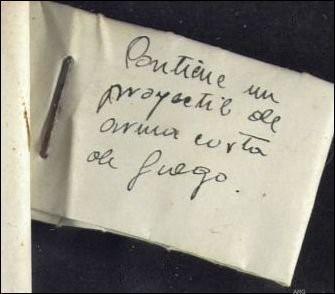 Contiene un
proyectil de
arma corta
de fuego.
ARG